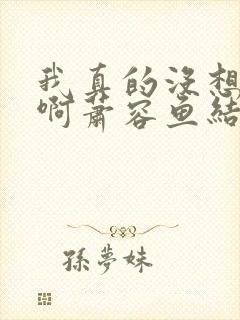 我真的没想
啊蕭容鱼結
孫夢妹